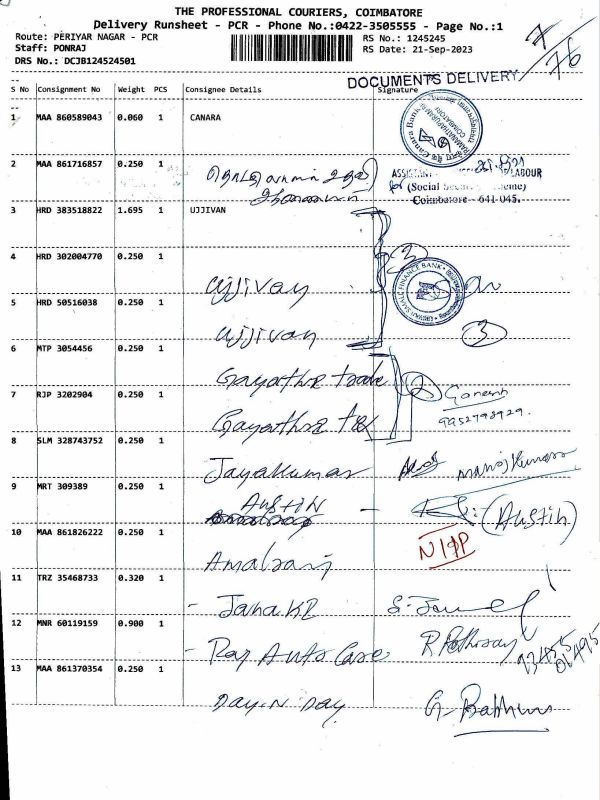 THE PROFESSIONAL COURIERS, COIMBATORE
Delivery Runsheet - PCR - Phone No.:0422-3505555 - Page No.:1
Route: PERIYAR NAGAR - PCR
RS No.: 1245245
Staff: PONRAJ
RS Date: 21-Sep-2023
DRS No.: DCJB124524501
7/76
DOCUMENTS DELIVERY
S No Consignment No Weight PCS Consignee Details Signature
1 MAA 860589043 0.060 1 CANARA
2 MAA 861716857 0.250 1
LABOUR
(Social
Coimbatore - 641 045.
3 HRD 383518822 1.695 1 UJJIVAN
4 HRD 302004770 0.250 1
2
Ujjivan
UJJIVAN SMALL FINANCE BANK
5 HRD 50516038 0.250 1
Ujjivan
3
6 MTP 3054456 0.250 1
Gayathri trade
2
Ganesh
7 RJP 3202904 0.250 1
9952798929.
Gayathri
8 SLM 328743752 0.250 1
Jayakumar
Manojkumar
9 MRT 309389 0.250 1
AUSTIN - (Austin)
10 MAA 861826222 0.250 1
Amalraj
11 TRZ 35468733 0.320 1
- Janaki
12 MNR 60119159 0.900 1
- Raj Auto Care
13 MAA 861370354 0.250 1
Day N Day